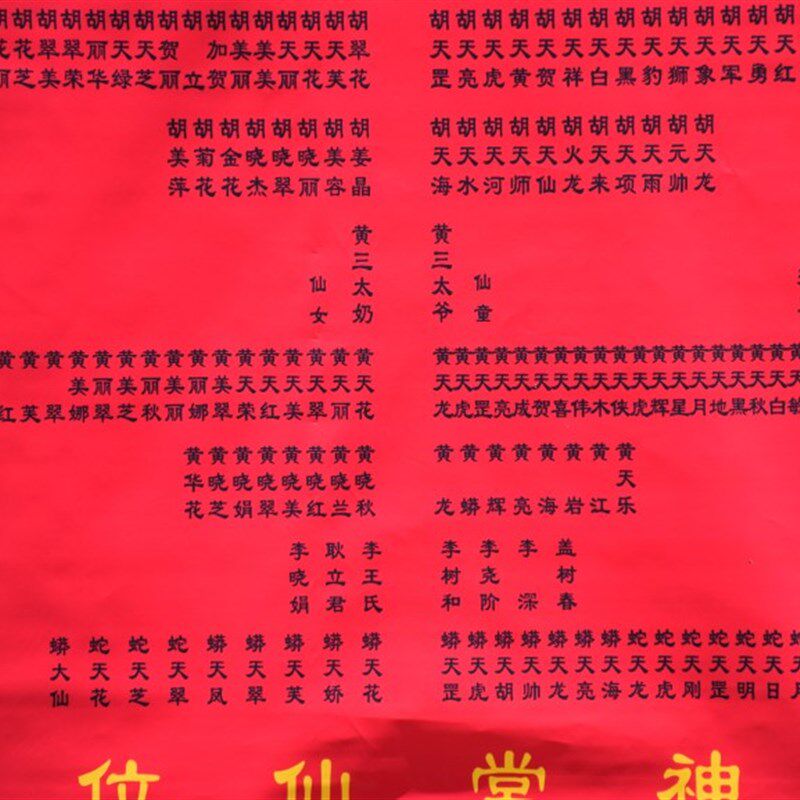 胡天红
胡天勇
胡天军
胡天象
胡天狮
胡天豹
胡天黑
胡天白
胡天祥
胡天贺
胡天黄
胡天虎
胡天亮
胡天罡
胡翠花
胡天芙
胡天花
胡天丽
胡美美
胡美丽
胡加贺
胡立
胡贺丽
胡天芝
胡天绿
胡丽华
胡翠荣
胡翠美
胡花芝
胡天龙
胡元帅
胡天雨
胡天项
胡天来
胡火龙
胡天仙
胡天师
胡天河
胡天水
胡天海
胡姜晶
胡美容
胡晓丽
胡晓翠
胡晓杰
胡金花
胡菊花
胡美萍
仙童
黄三太爷
黄三太奶
仙女
黄天敏
黄天白
黄天秋
黄天黑
黄天地
黄天月
黄天星
黄天辉
黄天虎
黄天侠
黄天木
黄天伟
黄天喜
黄天贺
黄天成
黄天亮
黄天罡
黄天虎
黄天龙
黄天花
黄天丽
黄天翠
黄天美
黄天红
黄天荣
黄美翠
黄丽娜
黄美丽
黄丽秋
黄美芝
黄丽翠
黄美娜
黄翠
黄芙
黄红
黄天乐
黄江
黄岩
黄海
黄亮
黄辉
黄蟒
黄龙
黄晓秋
黄晓兰
黄晓红
黄晓美
黄晓翠
黄晓娟
黄晓芝
黄华花
盖树春
李深
李尧阶
李树和
李王氏
耿立君
李晓娟
蛇天日
蛇天明
蛇天罡
蛇天刚
蛇天虎
蛇天龙
蟒天海
蟒天亮
蟒天龙
蟒天帅
蟒天胡
蟒天虎
蟒天罡
蟒天花
蟒天娇
蟒天芙
蟒天翠
蟒天凤
蛇天翠
蛇天芝
蛇天花
蟒大仙
神堂仙位